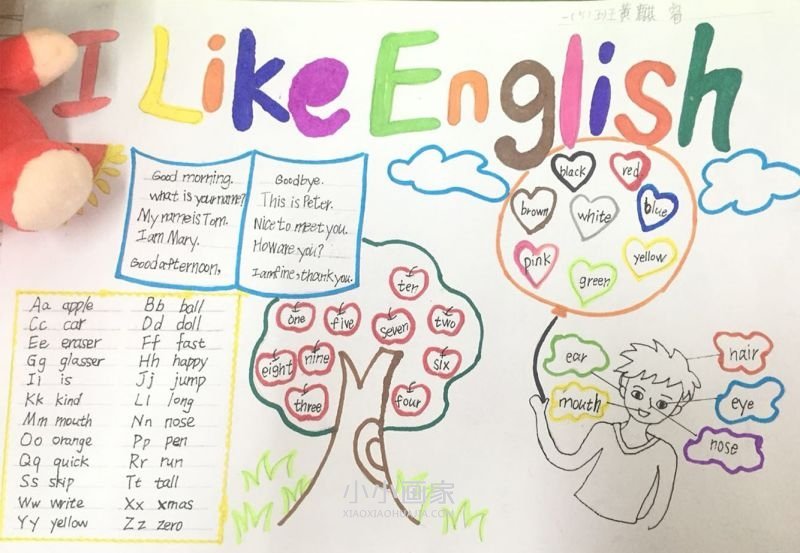 I Like English
Good morning.
what is your name?
My name is Tom.
I am Mary.
Good afternoon,
Goodbye.
This is Peter.
Nice to meet you.
How are you?
I am fine, thank you.
black
red
brown
white
blue
pink
green
yellow
ten
one
five
seven
two
eight
nine
six
three
four
Aa apple
Bb ball
Cc car
Dd doll
Ee eraser
Ff fast
Gg glasser
Hh happy
Ii is
Jj jump
Kk kind
Ll long
Mm mouth
Nn nose
Oo orange
Pp pen
Qq quick
Rr run
Ss skip
Tt tall
Ww write
Xx xmas
Yy yellow
Zz zero
ear
hair
mouth
eye
nose
小小画家
XIAOXIAOHUAJIA.COM